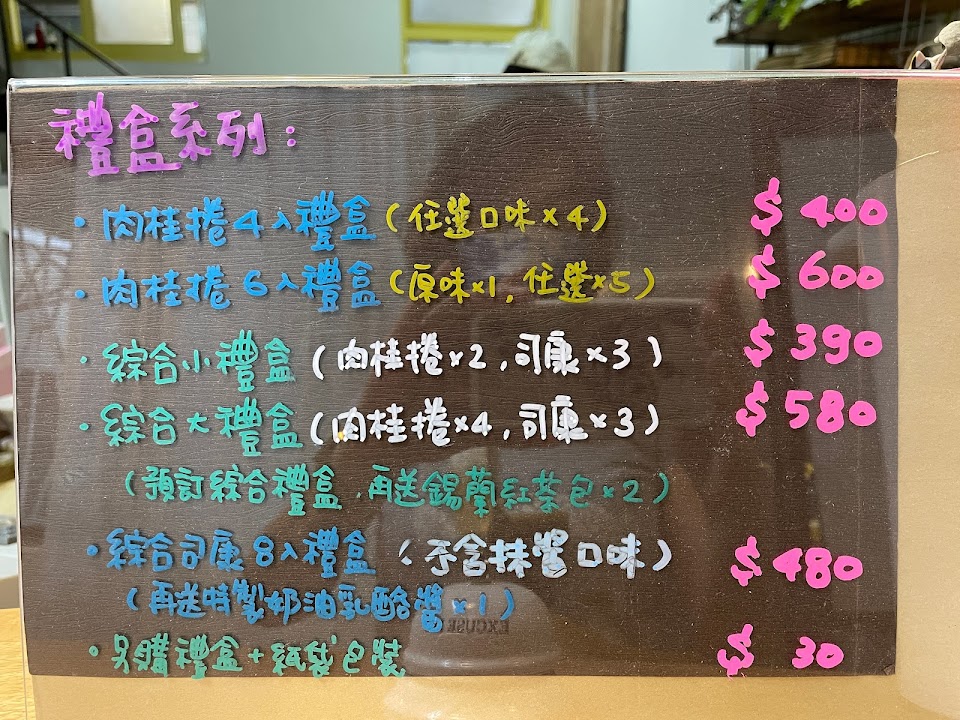 禮盒系列:
・肉桂捲4入禮盒(任選口味×4) $400
・肉桂捲6入禮盒(原味×1,任選×5) $600
・綜合小禮盒(肉桂捲×2,司康×3) $390
・綜合大禮盒(肉桂捲×4,司康×3) $580
(預訂綜合禮盒,再送錫蘭紅茶包×2)
・綜合司康8入禮盒(不含抹醬口味) $480
(再送特製奶油乳酪醬×1)
・另購禮盒+紙袋包裝 $30